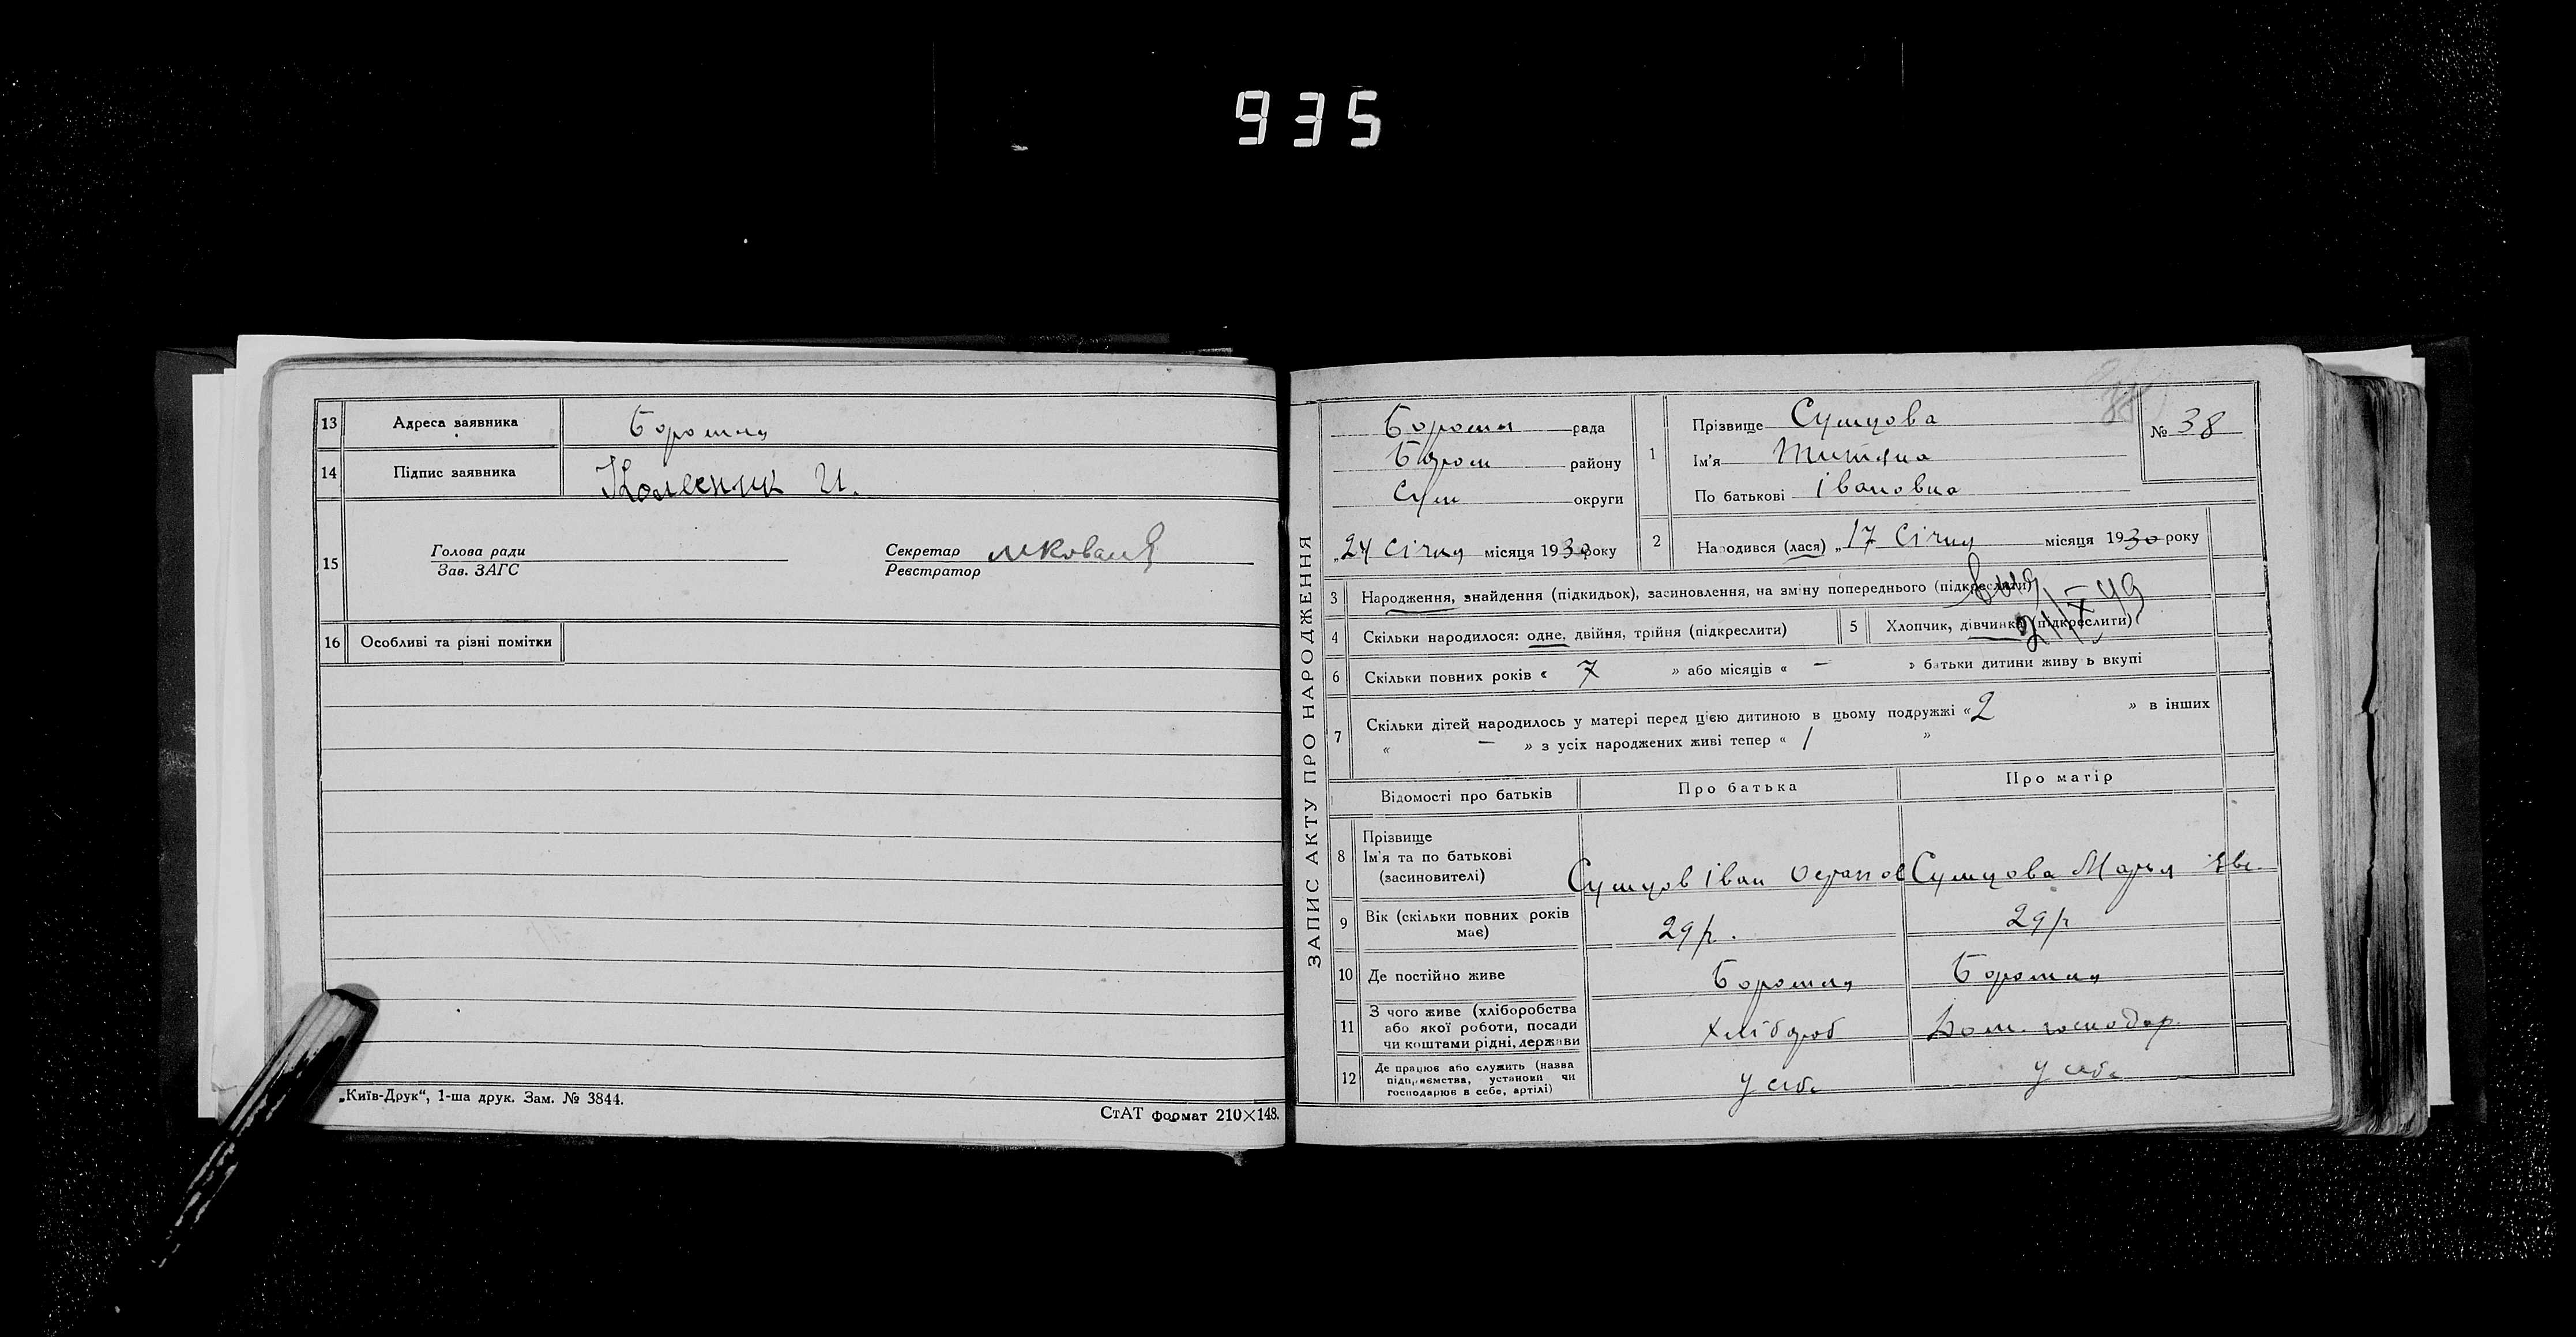 935
13 Адреса заявника Боромля
14 Підпис заявника Колесник И.
15 Голова ради
Зав. ЗАГС
Секретар
Реєстратор
16 Особливі та різні помітки
„Київ-Друк“, 1-ша друк. Зам. № 3844.
СтАТ формат 210×148.
ЗАПИС АКТУ ПРО НАРОДЖЕННЯ
Боромл рада
Бором району
Сум округи
„24 Січня місяця 1930 року
1 Прізвище Сумцова
Ім'я Титяна
По батькові Івановна
№ 38
2 Народився (лася) „17 Січня місяця 1930 року
3 Народження, знайдення (підкидьок), засиновлення, на зміну попереднього (підкреслити)
4 Скільки народилося: одне, двійня, трійня (підкреслити)
5 Хлопчик, дівчинка (підкреслити)
6 Скільки повних років « 7 » або місяців « — » батьки дитини живуть вкупі
7 Скільки дітей народилось у матері перед цією дитиною в цьому подружжі « 2 » в інших
« — » з усіх народжених живі тепер « 1 »
Відомості про батьків Про батька Про матір
8 Прізвище
Ім'я та по батькові
(засиновителі)
Сумцов Іван Остапов Сумцова Марья
9 Вік (скільки повних років
має)
29 р. 29 р
10 Де постійно живе Боромля Боромля
11 З чого живе (хліборобства
або якої роботи, посади
чи коштами рідні, держави
Хлібороб Дом. господар.
12 Де працює або служить (назва
підприємства, установи чи
господарює в себе, артілі)
у себе у себе